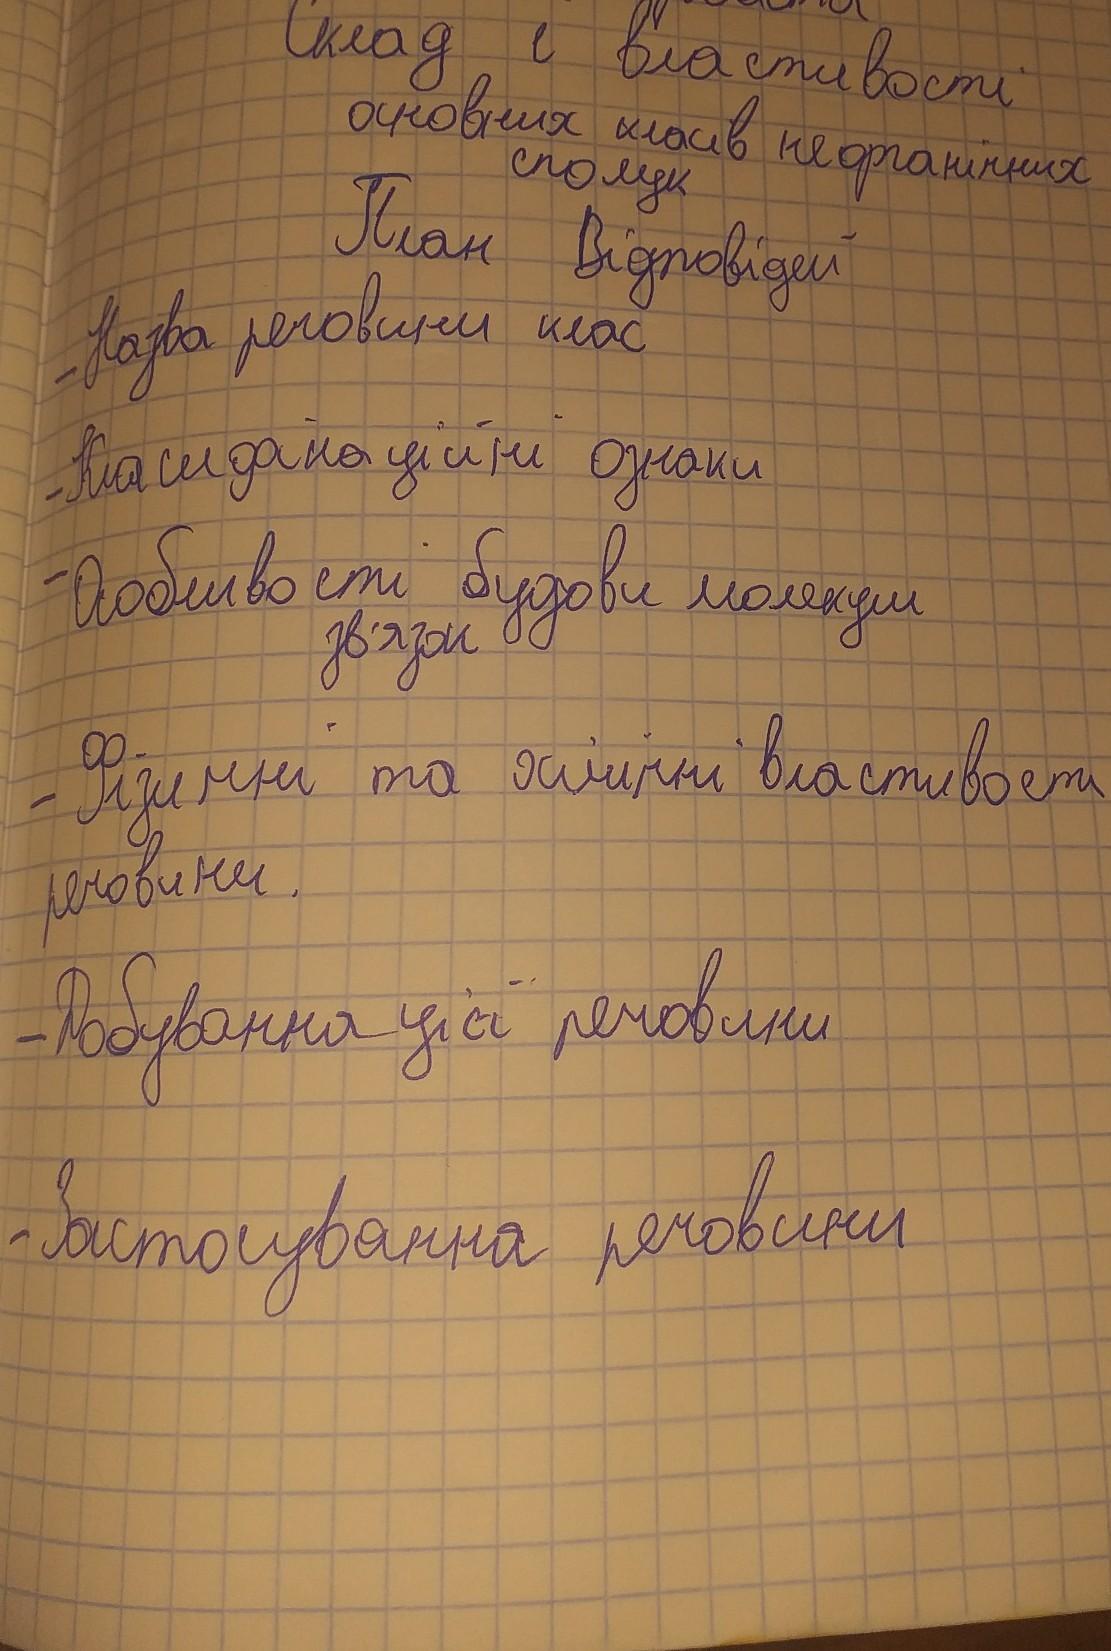 Склад і властивості
основних класів неорганічних
сполук
План Відповідей
- Назва речовини клас
- Класифікаційні ознаки
- Особливості будови молекули
зв'язок
- Фізичні та хімічні властивості
речовини.
- Добування цієї речовини
- Застосування речовини